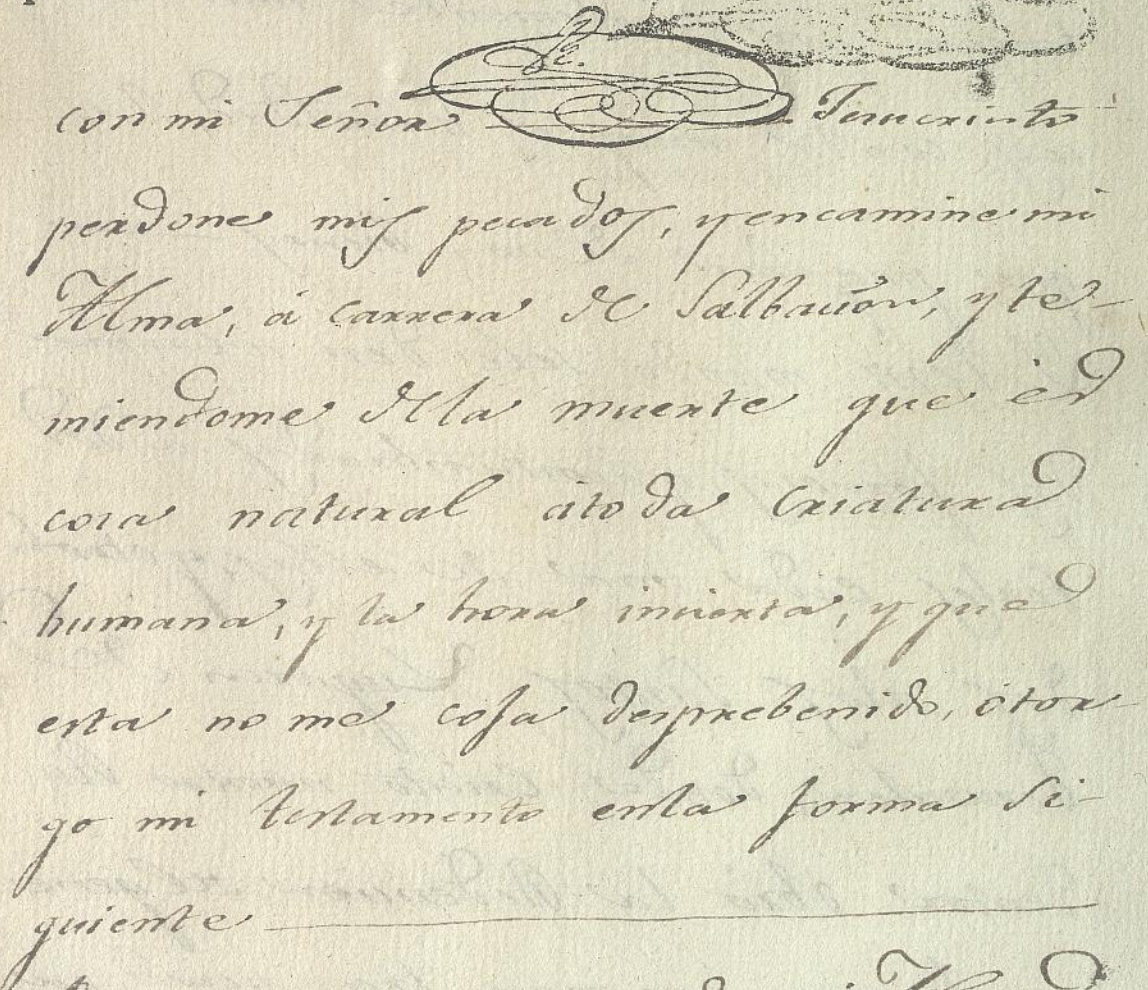 con mi Señor Jesucristo
perdone mis pecados, y encamine mi
Alma, á carrera de Salbación, y te-
miendome de la muerte que es
cosa natural á toda Criatura
humana, y la hora incierta, y que
esta no me cosa desprebenido, otor-
go mi testamento esta forma si-
guiente